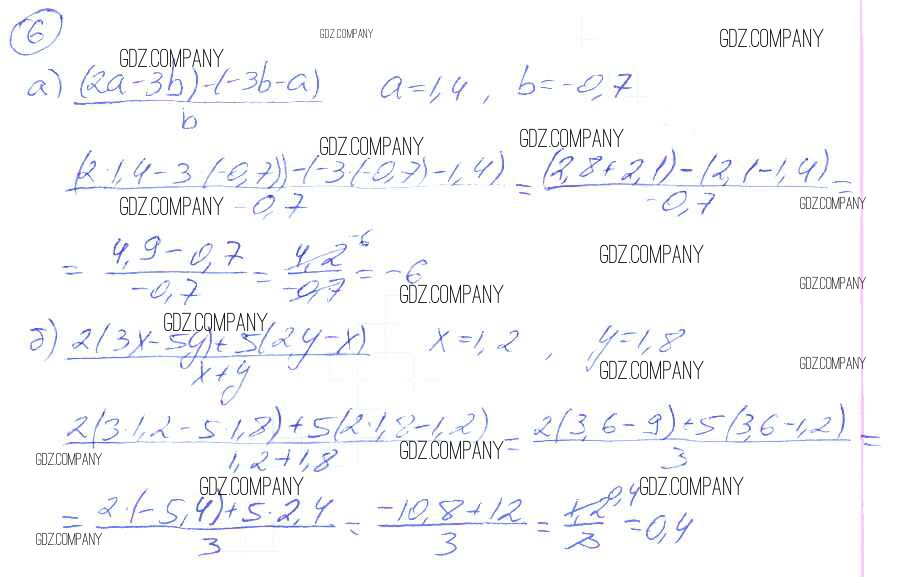 6 GDZ.COMPANY GDZ.COMPANY
GDZ.COMPANY
а) (2a-3b)-(-3b-a) / b a=1,4, b=-0,7
GDZ.COMPANY GDZ.COMPANY
(2·1,4-3·(-0,7))-(-3·(-0,7)-1,4) / -0,7 = (2,8+2,1)-(2,1-1,4) / -0,7 =
GDZ.COMPANY GDZ.COMPANY
= 4,9-0,7 / -0,7 = 4,2 / -0,7 -6 = -6
GDZ.COMPANY GDZ.COMPANY GDZ.COMPANY
GDZ.COMPANY
б) 2(3x-5y)+5(2y-x) / x+y x=1,2, y=1,8
GDZ.COMPANY GDZ.COMPANY
2(3·1,2-5·1,8)+5(2·1,8-1,2) / 1,2+1,8 = 2(3,6-9)+5(3,6-1,2) / 3 =
GDZ.COMPANY GDZ.COMPANY
GDZ.COMPANY GDZ.COMPANY
= 2·(-5,4)+5·2,4 / 3 = -10,8+12 / 3 = 1,2 / 3 0,4 = 0,4
GDZ.COMPANY